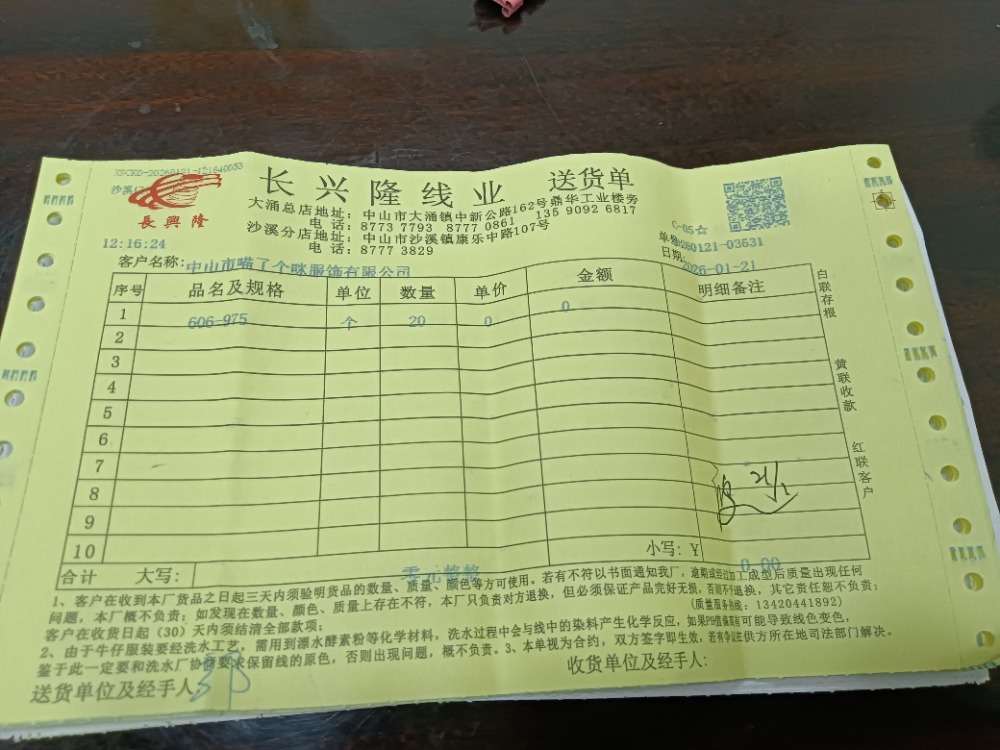 XSCKD-20260121-121640053
沙溪
長興隆
长兴隆线业 送货单
大涌总店地址：中山市大涌镇中新公路162号鼎华工业楼旁
电话：8773 7793 8777 0861 135 9092 6817
沙溪分店地址：中山市沙溪镇康乐中路107号
电话：8777 3829
C-05☆
12:16:24
单号 20260121-03531
日期 2026-01-21
客户名称：中山市喵了个咪服饰有限公司
序号 品名及规格 单位 数量 单价 金额 明细备注
1 606-975 个 20 0 0
2
3
4
5
6
7
8
9
10
21/1
小写：¥ 0.00
合计 大写： 零元整
白联存根
黄联收款
红联客户
1、客户在收到本厂货品之日起三天内须验明货品的数量、质量、颜色等方可使用。若有不符以书面通知我厂，逾期或经过加工成型后质量出现任何
问题，本厂概不负责；如发现在数量、颜色、质量上存在不符，本厂只负责对方退换，但必须保证产品完好无损，否则不予退换，其它责任恕不负责；
客户在收货日起（30）天内须结清全部款项；
(质量服务热线：13420441892)
2、由于牛仔服装要经洗水工艺，需用到漂水酵素粉等化学材料，洗水过程中会与线中的染料产生化学反应，如果PH值偏高有可能导致线色变色，
鉴于此一定要和洗水厂协商要求保留线的原色，否则出现问题，概不负责。3、本单视为合约，双方签字即生效，若有争议在供方所在地司法部门解决。
送货单位及经手人： 收货单位及经手人：